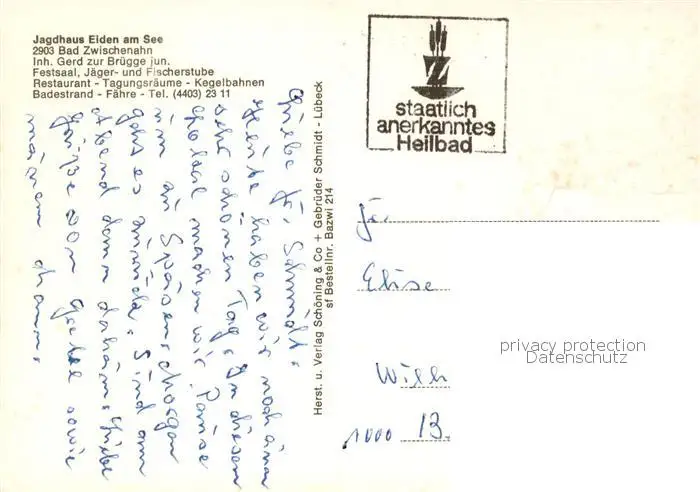 Jagdhaus Eiden am See
2903 Bad Zwischenahn
Inh. Gerd zur Brügge jun.
Festsaal, Jäger- und Fischerstube
Restaurant - Tagungsräume - Kegelbahnen
Badestrand - Fähre - Tel. (4403) 23 11
Z
staatlich
anerkanntes
Heilbad
Liebe Fr. Schmidt.
Heute haben wir noch einen
sehr schönen Tag. In diesem
Hotel machen wir Pause
um zu Speisen. Morgen
geht es zurück. Sind am
Abend dann daheim. Liebe
Grüße von sowie
Herst. u. Verlag Schöning & Co + Gebrüder Schmidt - Lübeck
sf Bestellnr. Bazwi 214
Fr.
Elise
1000 13.
privacy protection
Datenschutz